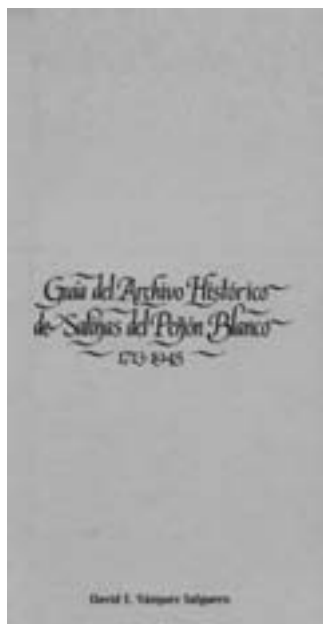 Guía del Archivo Histórico
de Salinas del Peñón Blanco
1713-1945
David E. Vázquez Salguero